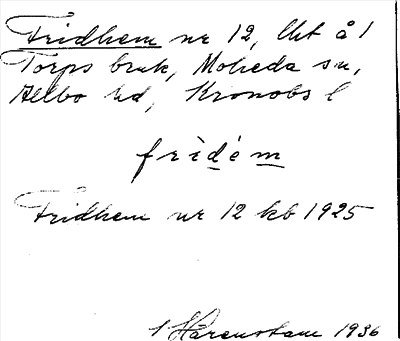 Fridhem nr 12, lht å 1
Torps bruk, Moheda sn,
Allbo hd, Kronobs l
frìdém
Fridhem nr 12 kb 1925
1 Hårenstam 1936